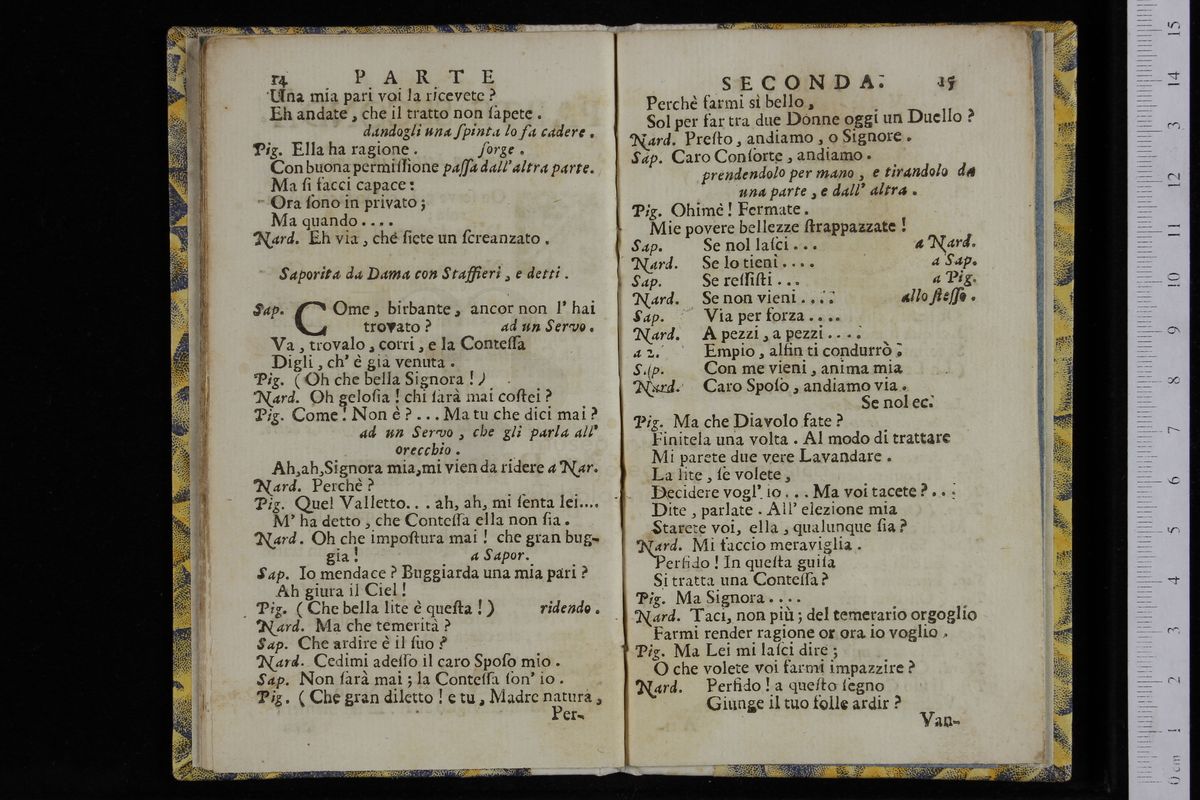 14 PARTE
Una mia pari voi la ricevete ?
Eh andate , che il tratto non ſapete .
dandogli una ſpinta lo fa cadere .
Pig. Ella ha ragione . ſorge .
Con buona permiſſione paſſa dall' altra parte .
Ma ſi facci capace :
Ora ſono in privato ;
Ma quando . . . .
Nard. Eh via , ché ſiete un ſcreanzato .
Saporita da Dama con Staffieri , e detti .
Sap. COme , birbante , ancor non l' hai
trovato ? ad un Servo .
Va , trovalo , corri , e la Conteſſa
Digli , ch' è già venuta .
Pig. ( Oh che bella Signora ! )
Nard. Oh geloſia ! chi ſarà mai coſtei ?
Pig. Come ! Non è ? . . . Ma tu che dici mai ?
ad un Servo , che gli parla all'
orecchio .
Ah,ah,Signora mia,mi vien da ridere a Nar.
Nard. Perchè ?
Pig. Quel Valletto. . . ah, ah, mi ſenta lei....
M' ha detto , che Conteſſa ella non ſia .
Nard. Oh che impoſtura mai ! che gran bug-
gia ! a Sapor.
Sap. Io mendace ? Buggiarda una mia pari ?
Ah giura il Ciel !
Pig. ( Che bella lite è queſta ! ) ridendo .
Nard. Ma che temerità ?
Sap. Che ardire è il ſuo ?
Nard. Cedimi adeſſo il caro Spoſo mio .
Sap. Non ſarà mai ; la Conteſſa ſon' io .
Pig. ( Che gran diletto ! e tu , Madre natura ,
Per-
SECONDA. 15
Perchè farmi sì bello ,
Sol per far tra due Donne oggi un Duello ?
Nard. Preſto , andiamo , o Signore .
Sap. Caro Conſorte , andiamo .
prendendolo per mano , e tirandolo da
una parte , e dall' altra .
Pig. Ohimè ! Fermate .
Mie povere bellezze ſtrappazzate !
Sap. Se nol laſci . . . a Nard.
Nard. Se lo tieni . . . . a Sap.
Sap. Se reſſiſti . . . a Pig.
Nard. Se non vieni . . . . allo ſteſſo .
Sap. Via per forza . . . .
Nard. A pezzi , a pezzi . . . .
a 2. Empio , alfin ti condurrò ;
Sap. Con me vieni , anima mia
Nard. Caro Spoſo , andiamo via .
Se nol ec.
Pig. Ma che Diavolo fate ?
Finitela una volta . Al modo di trattare
Mi parete due vere Lavandare .
La lite , ſe volete ,
Decidere vogl' io . . . Ma voi tacete ? . . .
Dite , parlate . All' elezione mia
Starete voi , ella , qualunque ſia ?
Nard. Mi faccio meraviglia .
Perfido ! In queſta guiſa
Si tratta una Conteſſa ?
Pig. Ma Signora . . . .
Nard. Taci, non più ; del temerario orgoglio
Farmi render ragione or ora io voglio .
Pig. Ma Lei mi laſci dire ;
O che volete voi farmi impazzire ?
Nard. Perfido ! a queſto ſegno
Giunge il tuo folle ardir ?
Van-
0 cm 1 2 3 4 5 6 7 8 9 10 11 12 13 14 15